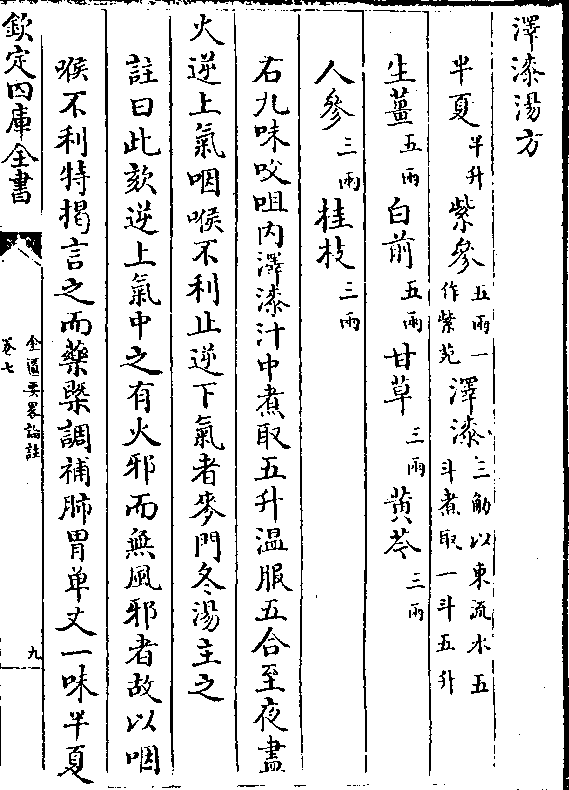 澤漆湯方
半夏半升紫參五兩一作紫苑澤漆三觔以東流水五斗煮取一斗五升
生薑五兩白前五兩甘草三兩黃芩三兩
人參三兩桂枝三兩
右九味㕮咀內澤漆汁中煮取五升溫服五合至夜盡
火逆上氣咽喉不利止逆下氣者麥門冬湯主之
註曰此欬逆上氣中之有火邪而無風邪者故以咽
喉不利特揭言之而藥槩調補肺胃单丈一味半夏
欽定四庫全書
金匱要畧論註
卷七
九